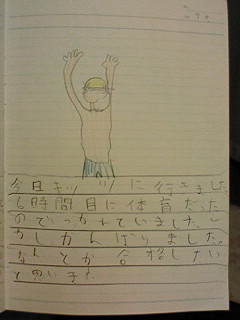 今日キッリに行きました。
6時間目に体育だった
のでつかれていました。し
かしがんばりました。
なんとか合格したい
と思います。